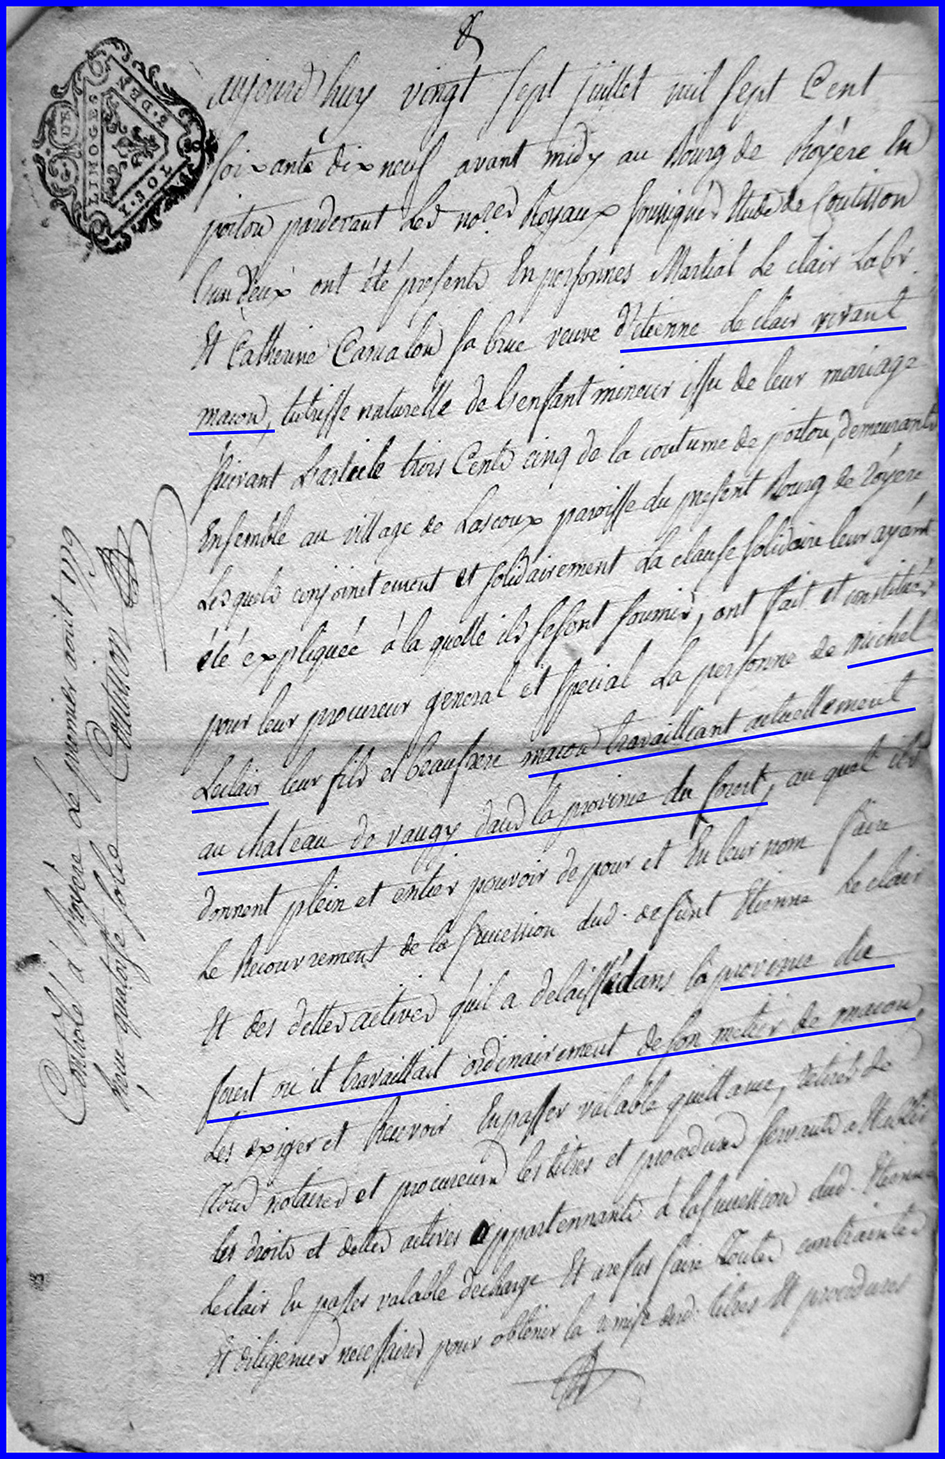 LIMOGES
2. S. DEN
aujourdhuy vingt sept juillet mil sept Cent
soixante dix neuf avant midy au Bourg de Royére En
poitou pardevant Les no.res Royaux soussignés Etude de Coutisson
l'un d'eux ont été présents En personnes Martial Le clair Lab.r
Et Catherine Camalou sa brue veuve d'etienne Le clair vivant
macon, tutrisse naturelle de l'enfant mineur issu de leur mariage
suivant L'article trois Cents cinq de la coutume de poitou, demeurants
Ensemble au village de Lascoux paroisse du present Bourg de royére
Lesquels conjointement et solidairement La clause solidaire leur ayant
été expliquée à la quelle ils se sont soumis, ont fait et constitué
pour leur procureur general et special La personne de michel
Leclair leur fils et beaufrere macon travaillant actuellement
au chateau de vaugy dans la province du forest, au qual ils
donnent plein et entier pouvoir de pour et En leur nom faire
Le Recouvrement de la succession dud. defunt Etienne Le clair
Et des dettes actives qu'il a delaissé dans la province du
forest ou il travaillait ordinairement de son metier de macon,
Les exiger et Recevoir En passer valable quittance, retirer de
tous notaires et procureurs les titres et procedures servants a
les droits et dettes actives appartennants à la succession dud. Etienne
Leclair En passer valable decharge Et au refus faire toutes contraintes
Et diligences necessaires pour obtenir la remise desd. titres Et procedures
Controlé à Royére Le premier aout 1779
quatorze sols Coutisson